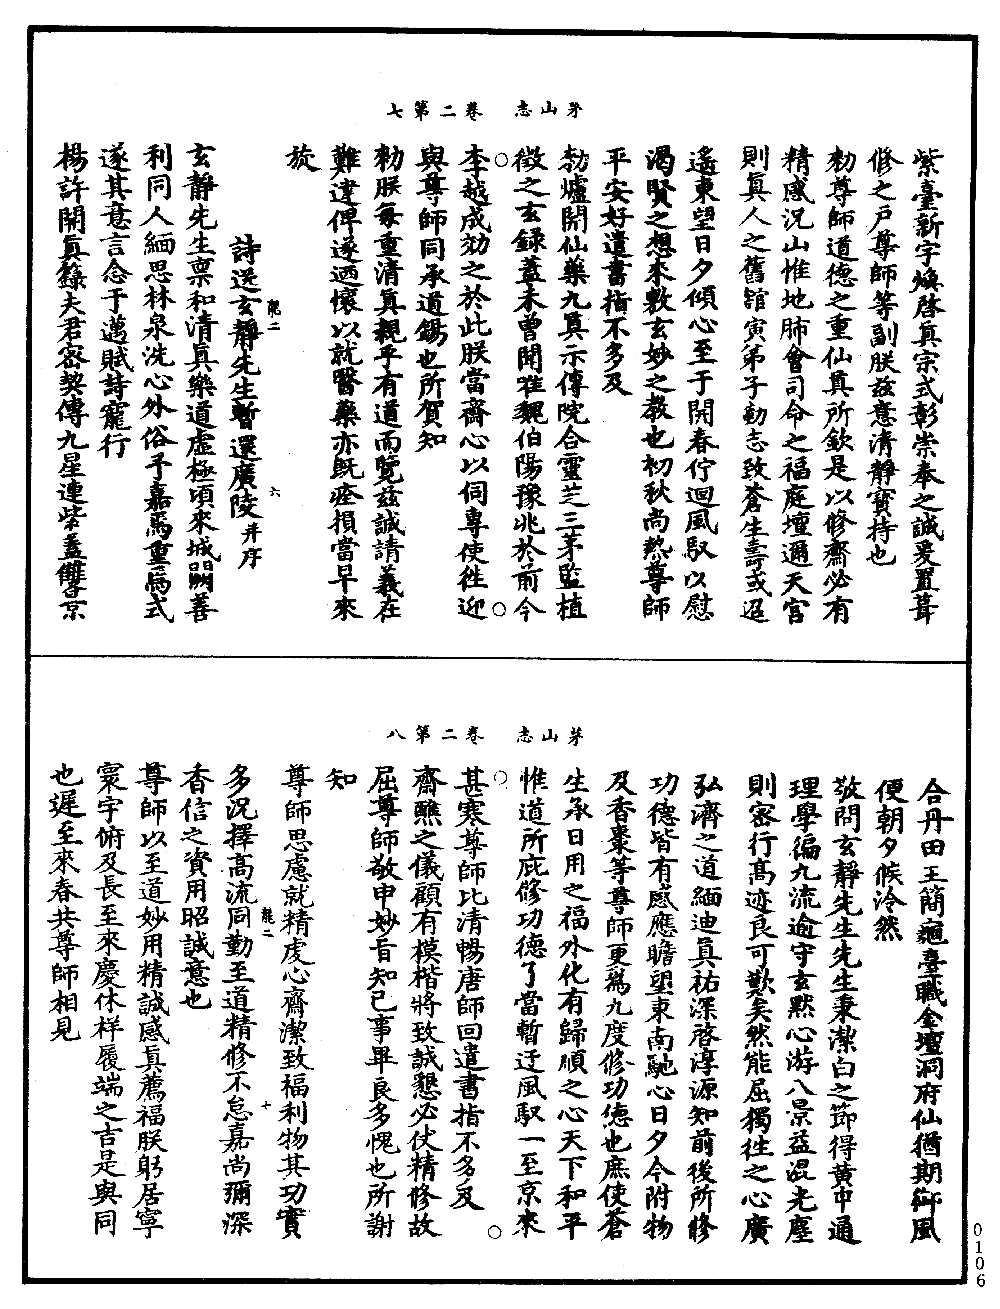 茅山志　卷二第七
紫臺新字煥啓真宗式彰崇奉之誠爰置葺
修之戶尊師等副朕茲意清靜寶持也
勑尊師道德之重仙真所欽是以修齋必有
精感況山惟地肺會司命之福庭壇邇天宮
則真人之舊館寅弟子勤志致蒼生壽或迢
遙東望日夕傾心至于開春佇迴風馭以慰
渴賢之想來數玄妙之教也初秋尚熱尊師
平安好遣書指不多及
勑爐開仙藥九真示傳院合靈芝三茅監植
徵之玄錄蓋未曾聞唯魏伯陽豫兆於前今
李越成効之於此朕當齋心以伺專使往迎
與尊師同承道錫也所賀知
勑朕每重清真親乎有道而覽茲誠請義在
難違俾遂迺懷以就醫藥亦既痊損當早來
旋
詩送玄靜先生暫還廣陵并序
龍二
六
玄靜先生禀和清真樂道虛極頃來城闕善
利同人緬思林泉洗心外俗予嘉焉重焉式
遂其意言念于邁賦詩寵行
楊許開真籙夫君密契傳九星連紫蓋雙景
茅山志　卷二第八
合丹田玉簡龜臺職金壇洞府仙猶期御風
便朝夕候泠然
敬問玄靜先生先生秉潔白之節得黃中通
理學徧九流逾守玄默心游八景益混光塵
則密行高迹良可歎矣然能屈獨往之心廣
弘濟之道緬迪真祐深啓淳源知前後所修
功德皆有感應瞻望東南馳心日夕今附物
及香棗等尊師更為九度修功德也庶使蒼
生承日用之福外化有歸順之心天下和平
惟道所庇修功德了當暫迂風馭一至京來
甚寒尊師比清暢唐師回遣書指不多及
齋醮之儀顧有模楷將致誠懇必仗精修故
屈尊師敬申妙旨知已事畢良多愧也所謝
知
尊師思慮就精虔心齋潔致福利物其功實
多況擇高流同勤至道精修不怠嘉尚彌深
龍二
十
香信之資用昭誠意也
尊師以至道妙用精誠感真薦福朕躬居寧
寰宇俯及長至來慶休祥履端之吉是與同
也遲至來春共尊師相見
0106